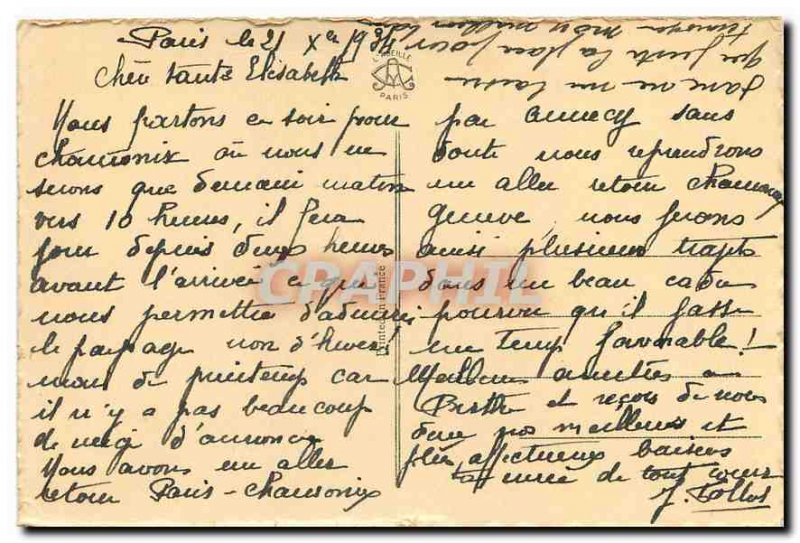 Paris le 21 Xe 1934
Chère tante Elisabeth
Nous partons ce soir pour
Chamonix où nous ne
serons que demain matin
vers 10 heures, il fera
jour depuis deux heures
avant l'arrivée ce qui
nous permettra d'admirer
le paysage non d'hiver!
mais de printemps car
il n'y a pas beaucoup
de neige d'annoncée
Nous avons un aller
retour Paris-Chamonix
par Annecy sans
doute nous reprendrons
un aller retour Chamonix
Genève, nous ferons
ainsi plusieurs trajets
dans un beau cadre
pourvu qu'il fasse
un temps favorable!
Meilleures amitiés à
Berthe et reçois de nous
deux nos meilleurs et
plus affectueux baisers
de tout coeur
L'ABEILLE
PARIS
Printed in France
CPAPHIL